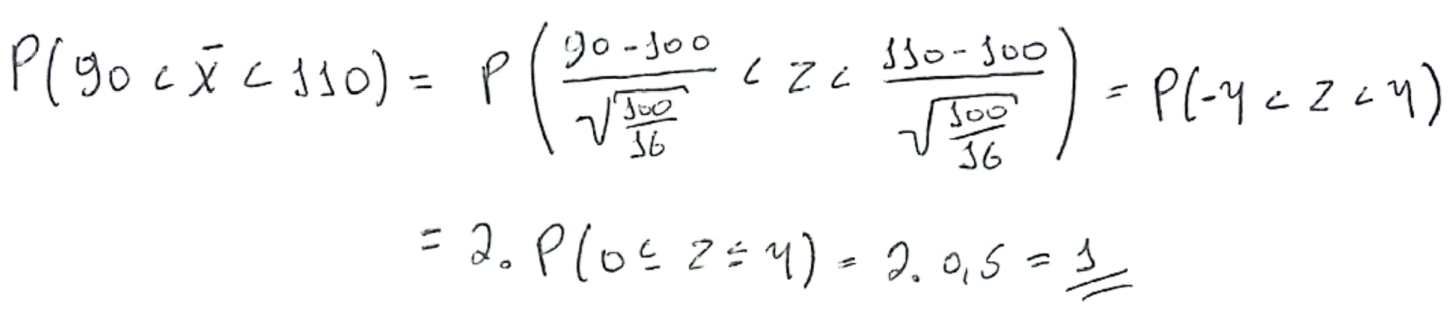 P(90 < x̄ < 110) = P( (90-100)/√(100/16) < z < (110-100)/√(100/16) ) = P(-4 < z < 4)
= 2. P(0 ≤ z ≤ 4) = 2. 0,5 = 1